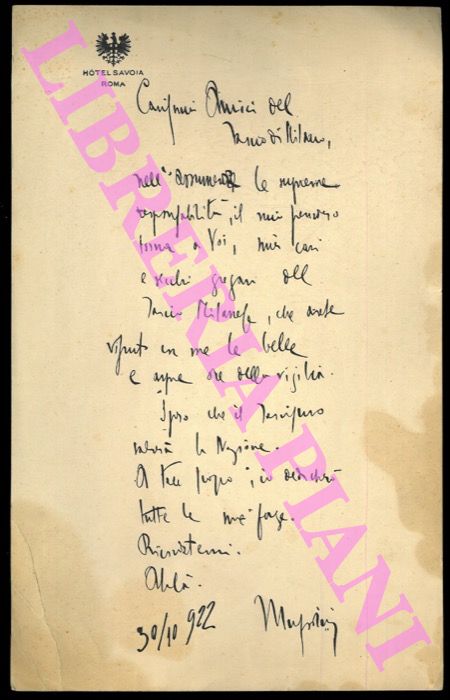 HÔTEL SAVOIA
ROMA
Carissimi Amici del
Fascio di Milano,
nell'assumere le supreme
responsabilità, il mio pensiero
torna a Voi, miei cari
e vecchi gregari del
Fascio Milanese, che avete
vissuto con me le belle
e aspre ore della vigilia.
Spero che il Fascismo
salverà la Nazione.
A tale scopo, io dedicherò
tutte le mie forze.
Ricordatemi.
Alalà.
30/10 922 Mussolini
LIBRERIA PIANI